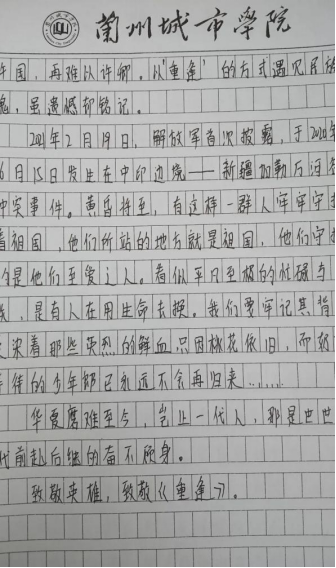 蘭州城市學院
许国，再难以许卿。以“重逢”的方式遇见民族
魂，虽遗憾却铭记。
2021年2月19日，解放军首次披露，于2020年
6月15日发生在中印边境——新疆加勒万河谷
冲突事件。黄昏将至，有这样一群人牢牢守护
着祖国，他们所站的地方就是祖国，他们守护
的是他们至爱之人。看似平凡至极的忙碌与
，是有人在用生命去换。我们要牢记其背
染着那些英烈的鲜血只因桃花依旧，而奶
等待的少年郎已永远不会再归来……
华夏磨难至今，岂止一代人，那是世世
代前赴后继的奋不顾身。
致敬英雄，致敬《重逢》。